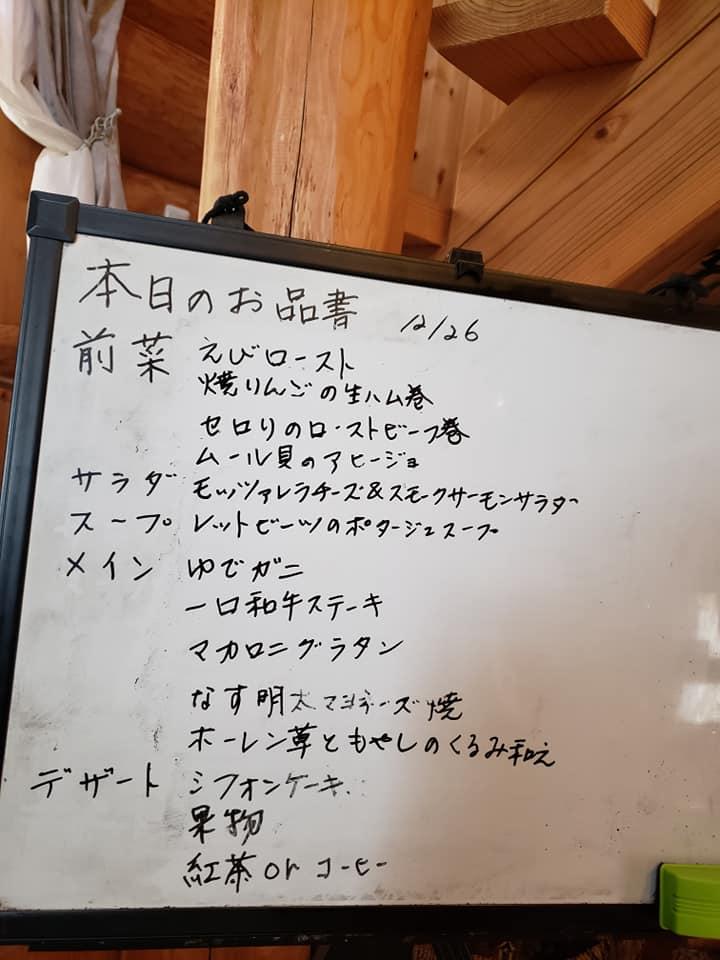 本日のお品書 12/26
前菜 えびロースト
焼りんごの生ハム巻
セロリのローストビーフ巻
ムール貝のアヒージョ
サラダ モッツァレラチーズ&スモークサーモンサラダー
スープ レットビーツのポタージュスープ
メイン ゆでガニ
一口和牛ステーキ
マカロニグラタン
なす明太マヨネーズ焼
ホーレン草ともやしのくるみ和え
デザート シフォンケーキ
果物
紅茶 or コーヒー